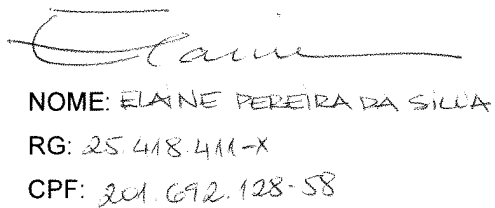 Elaine
NOME: ELAINE PEREIRA DA SILVA
RG: 25.418.411-X
CPF: 201.692.128-58